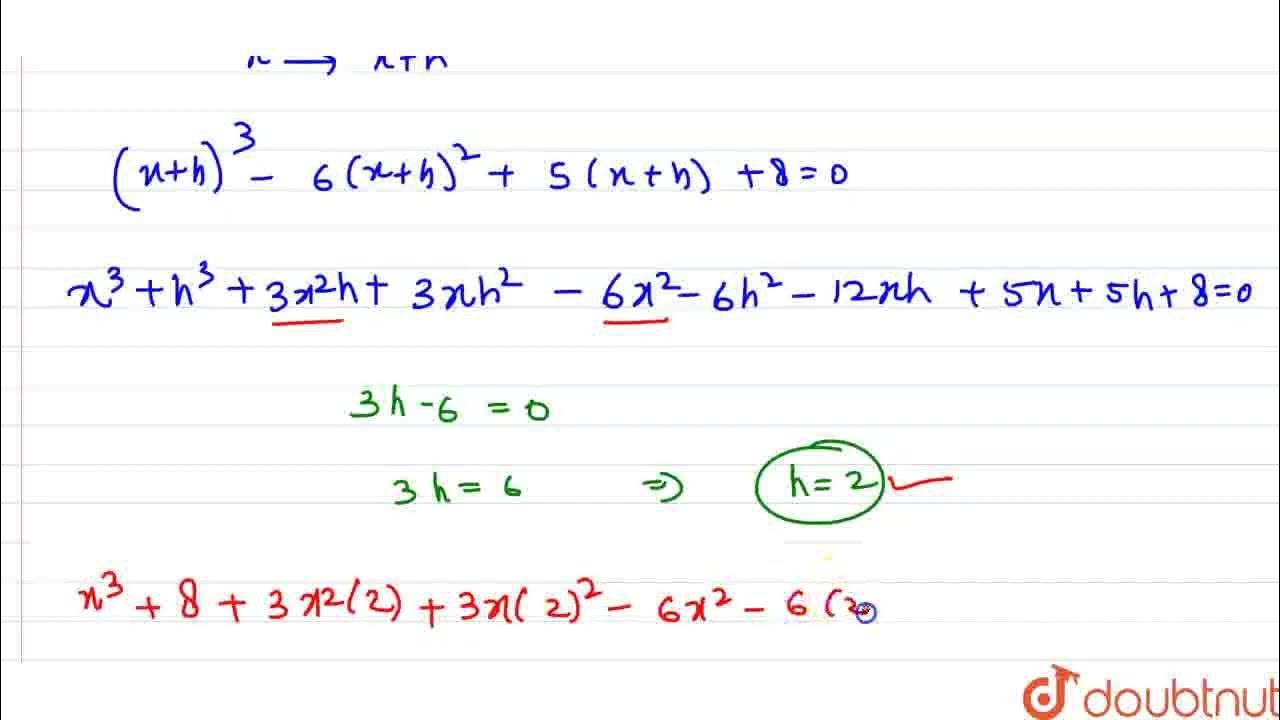 (x+h)³ - 6(x+h)² + 5(x+h) +8=0
x³ + h³ + 3x²h + 3xh² - 6x² - 6h² - 12xh + 5x + 5h + 8=0
3h - 6 = 0
3h = 6 ⇒ h = 2 ✓
x³ + 8 + 3x²(2) + 3x(2)² - 6x² - 6(2
doubtnut